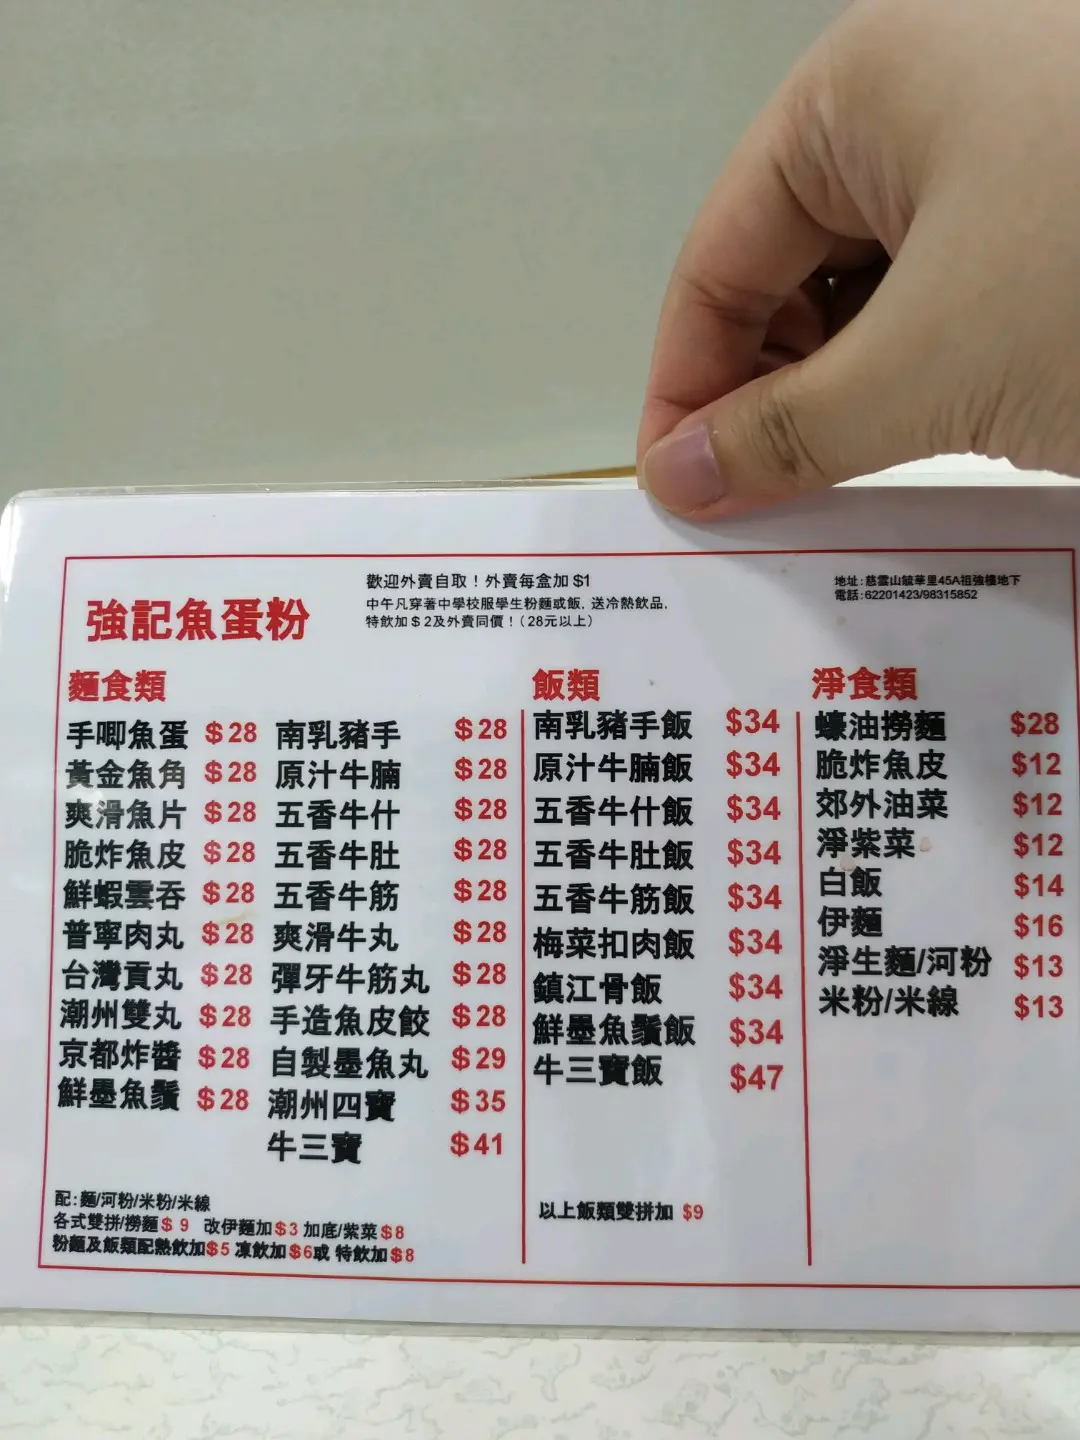 強記魚蛋粉
歡迎外賣自取！外賣每盒加 $1
中午凡穿著中學校服學生粉麵或飯, 送冷熱飲品,
特飲加＄2及外賣同價！（28元以上）
地址：慈雲山毓華里45A祖強樓地下
電話：62201423/98315852
麵食類
手唧魚蛋 $28
黃金魚角 $28
爽滑魚片 $28
脆炸魚皮 $28
鮮蝦雲吞 $28
普寧肉丸 $28
台灣貢丸 $28
潮州雙丸 $28
京都炸醬 $28
鮮墨魚鬚 $28
南乳豬手 $28
原汁牛腩 $28
五香牛什 $28
五香牛肚 $28
五香牛筋 $28
爽滑牛丸 $28
彈牙牛筋丸 $28
手造魚皮餃 $28
自製墨魚丸 $29
潮州四寶 $35
牛三寶 $41
配：麵/河粉/米粉/米線
各式雙拼/撈麵$ 9 改伊麵加$3 加底/紫菜$8
粉麵及飯類配熱飲加$5 凍飲加$6或 特飲加$8
飯類
南乳豬手飯 $34
原汁牛腩飯 $34
五香牛什飯 $34
五香牛肚飯 $34
五香牛筋飯 $34
梅菜扣肉飯 $34
鎮江骨飯 $34
鮮墨魚鬚飯 $34
牛三寶飯 $47
以上飯類雙拼加 $9
淨食類
蠔油撈麵 $28
脆炸魚皮 $12
郊外油菜 $12
淨紫菜 $12
白飯 $14
伊麵 $16
淨生麵/河粉 $13
米粉/米線 $13